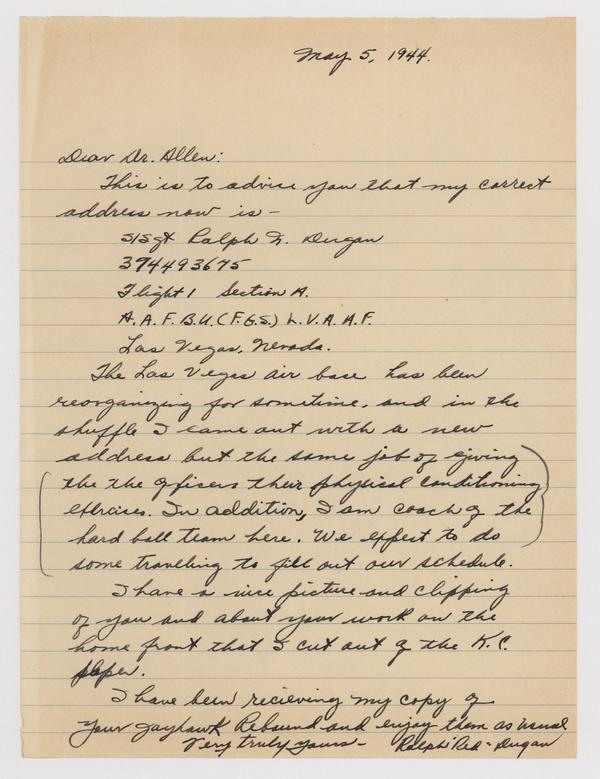 May 5, 1944.
Dear Dr. Allen:
This is to advise you that my correct
address now is -
S/Sgt Ralph I. Dugan
394493675
Flight 1 Section A.
A.A.F.B.U. (F.G.S.) L.V.A.A.F.
Las Vegas, Nevada.
The Las Vegas air base has been
reorganizing for sometime, and in the
shuffle I came out with a new
address but the same job of giving
the the officers their physical conditioning
exercises. In addition, I am coach of the
hard ball team here. We expect to do
some traveling to fill out our schedule.
I have a nice picture and clipping
of you and about your work on the
home front that I cut out of the K.C.
paper.
I have been recieving my copy of
your Jayhawk Rebound and enjoy them as usual
Very truly yours - Ralph "Red" Dugan